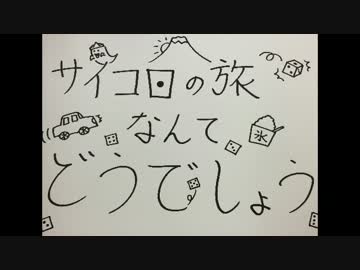 サイコロの旅
なんて
どうでしょう
氷